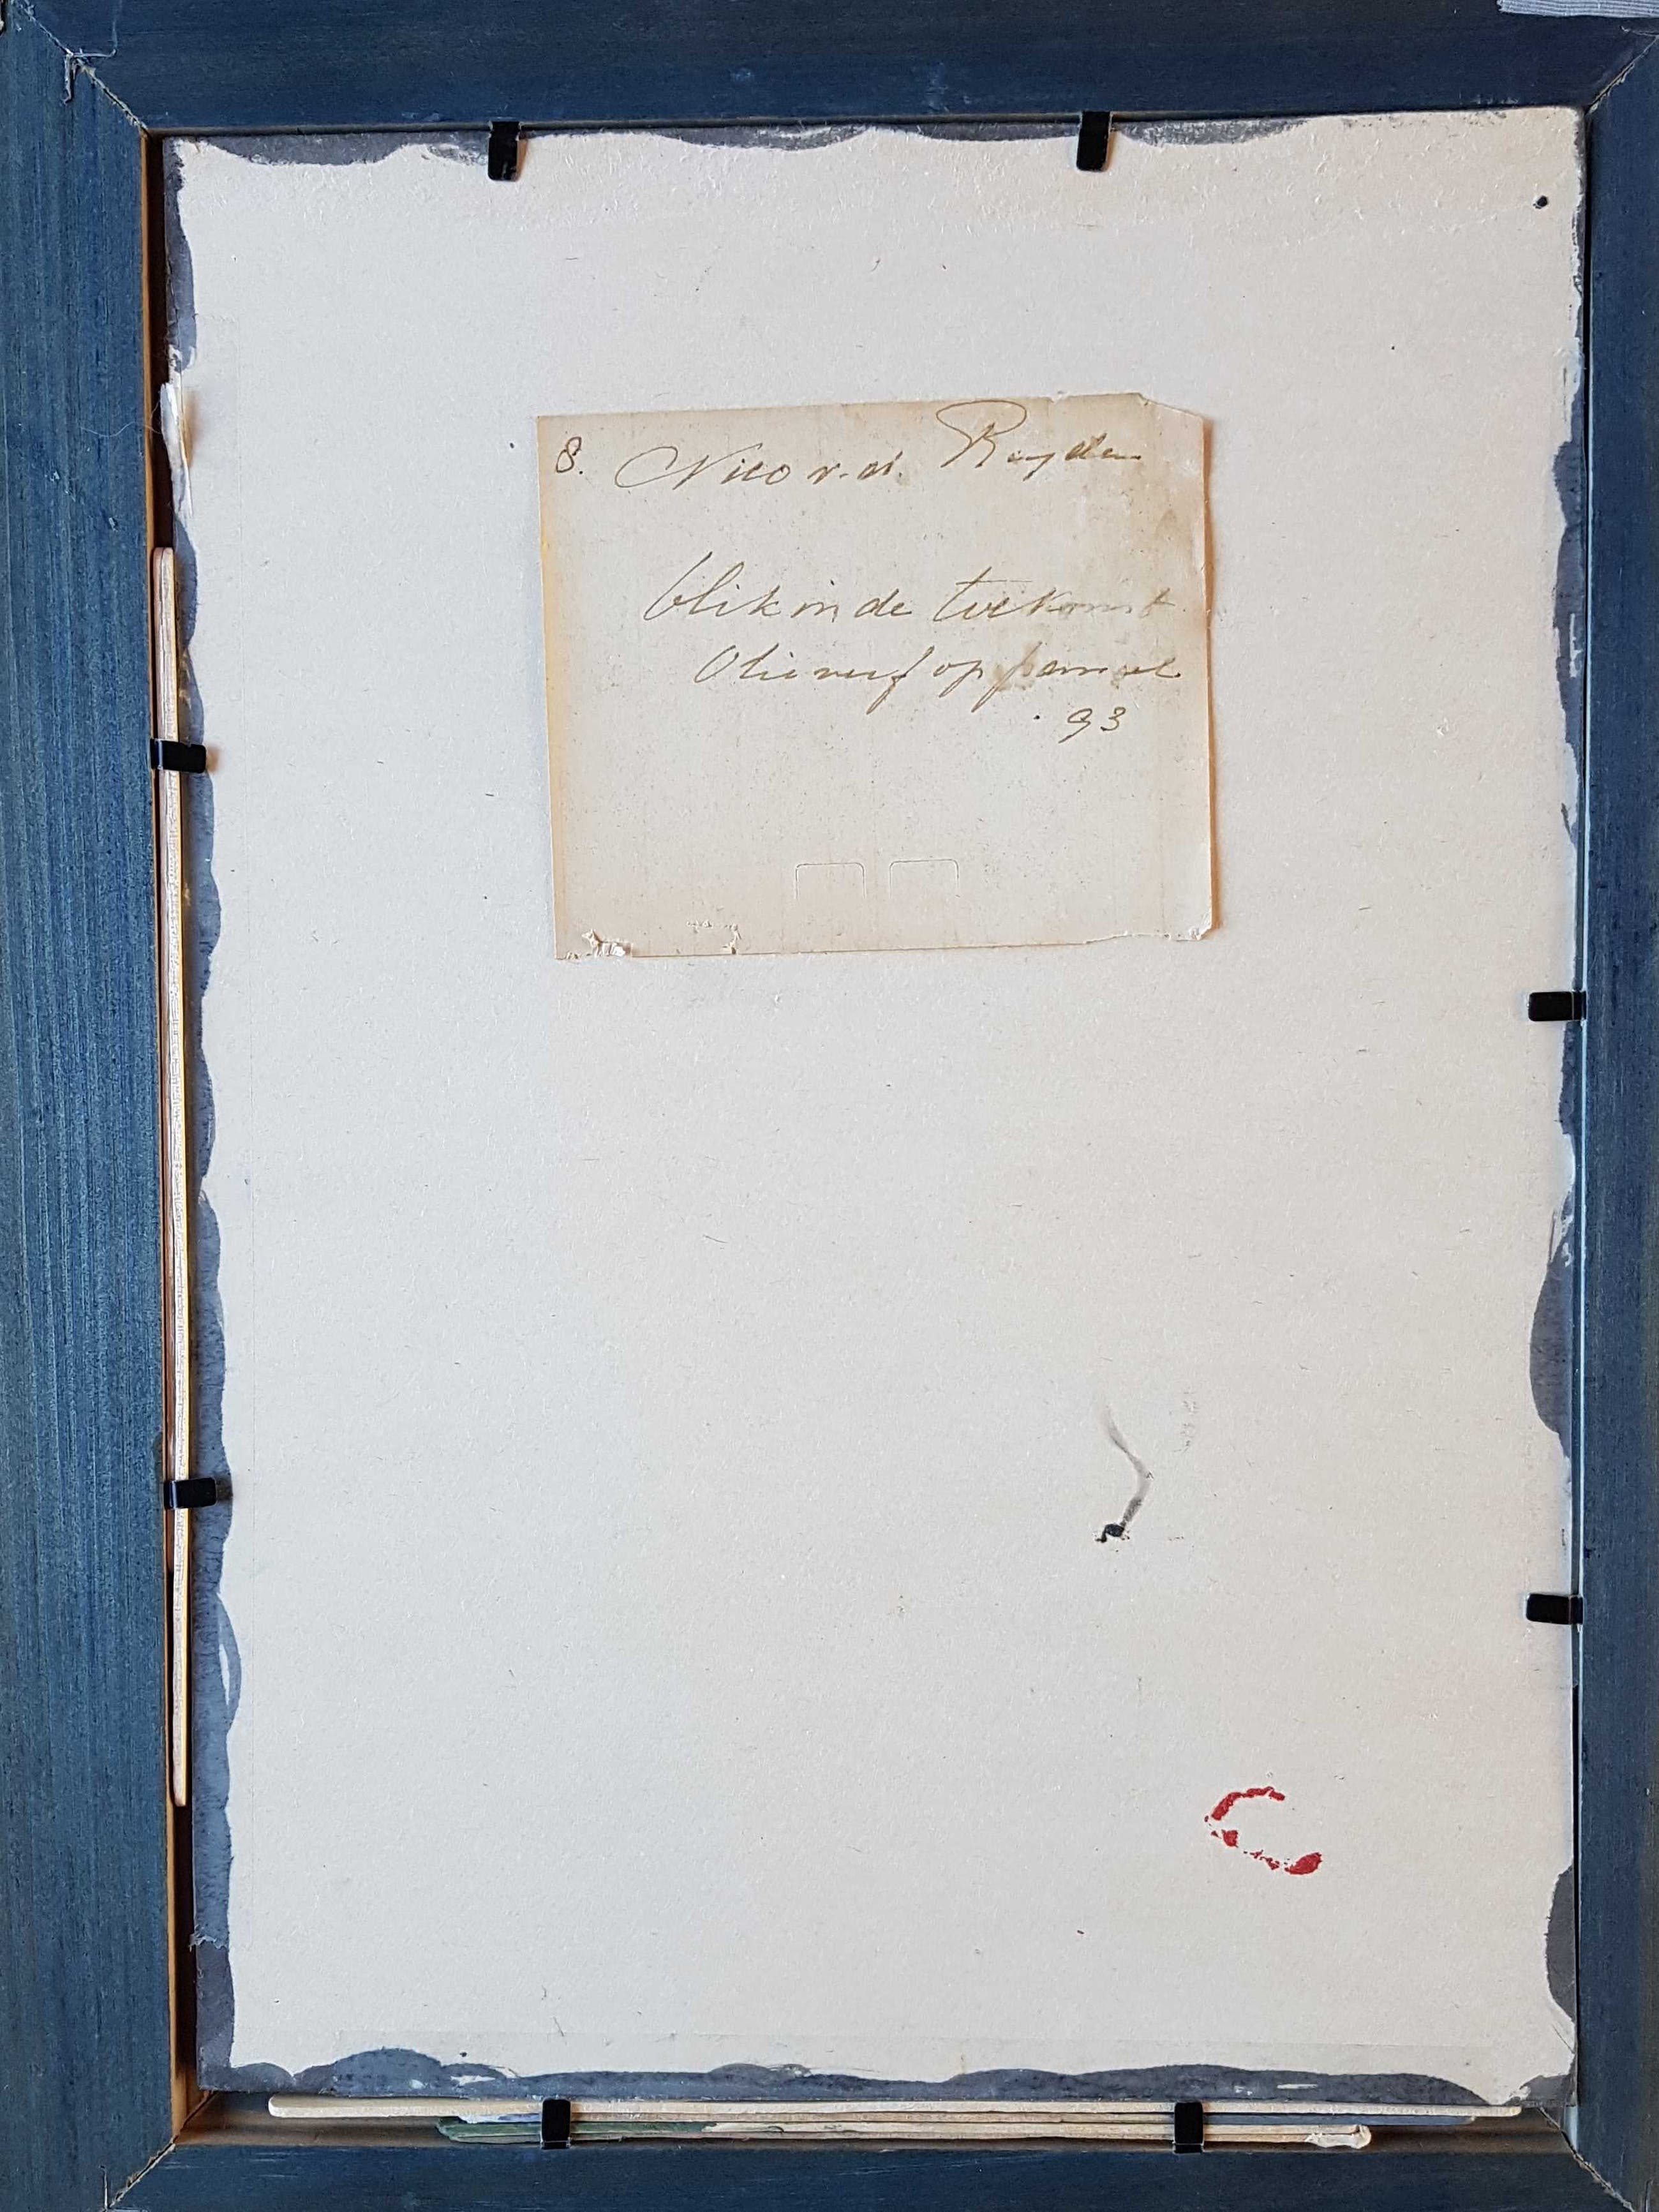 8. Nico v.d.
blik in de toekomst
Olieverf op paneel
93